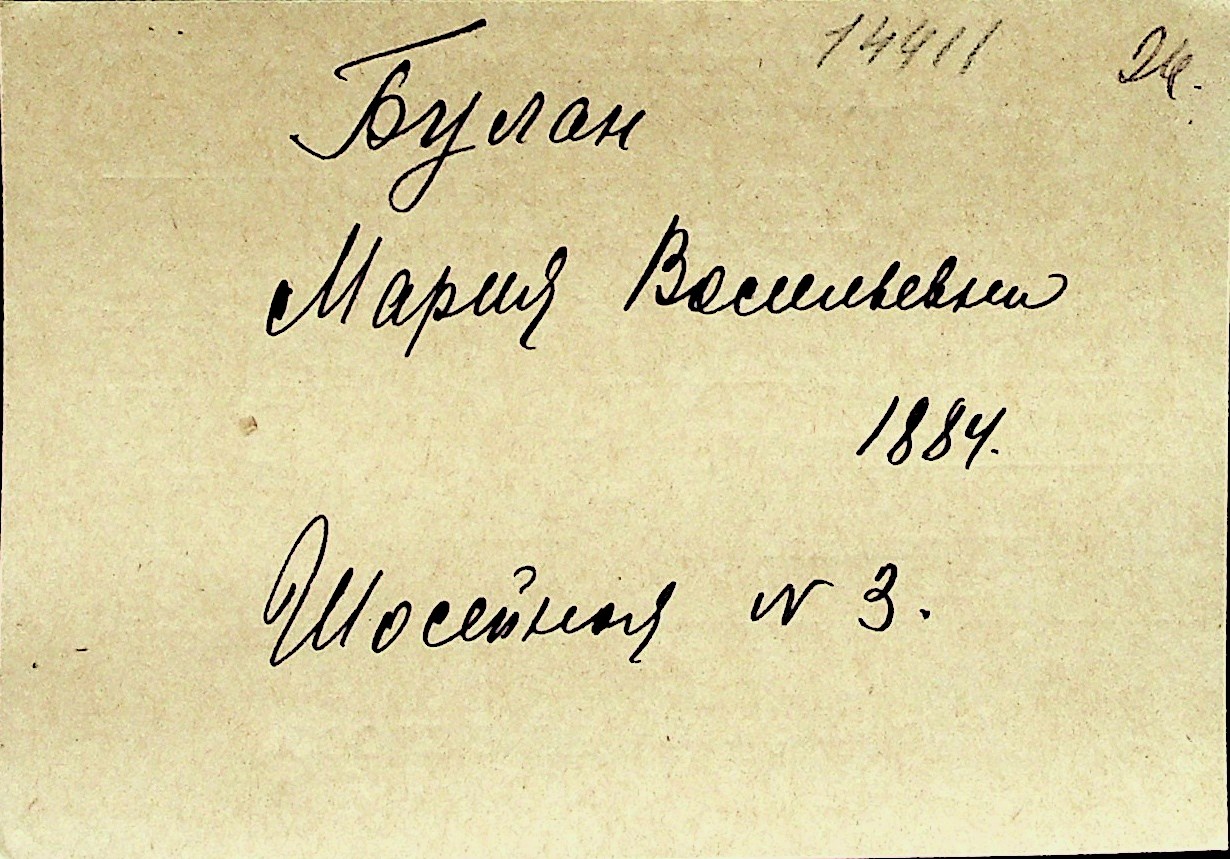 14411 26.
Булан
Мария Васильевна
1884.
Шосейная № 3.